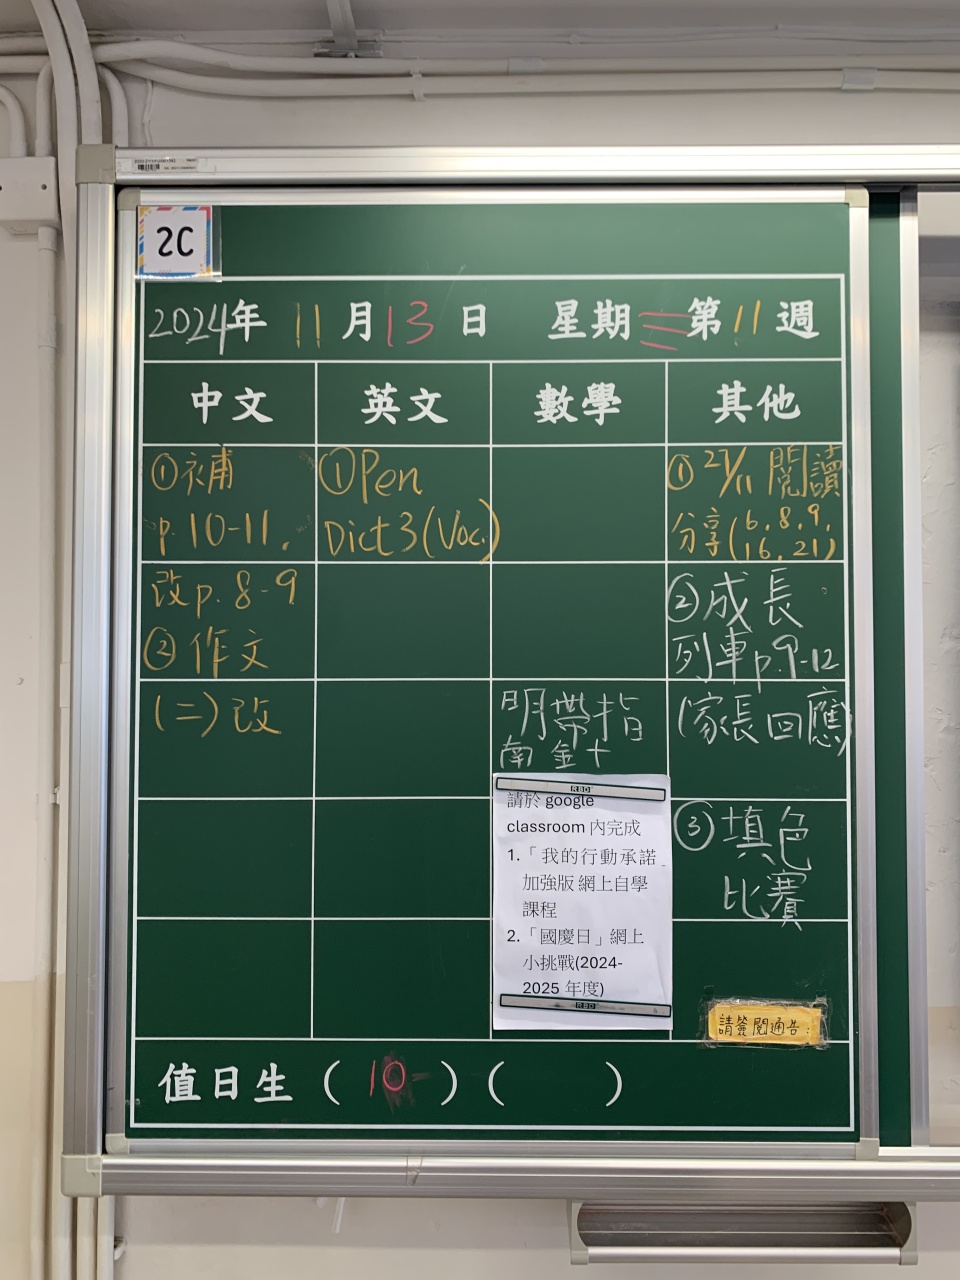 2C
2024年 11月13日 星期三 第11週
中文 英文 數學 其他
①補
p.10-11.
改p.8-9
②作文
(二)改
①Pen
Dict3(Voc.)
明帶指
南金十
請於 google
classroom 內完成
1.「我的行動承諾
加強版網上自學
課程
2.「國慶日」網上
小挑戰(2024-
2025 年度)
①27/11 閱讀
分享(6,8,9,
16,21)
②成長
列車p.9-12
(家長回應)
③填色
比賽
請簽閱通告.
值日生 ( 10 ) ( )
RBD
RBD